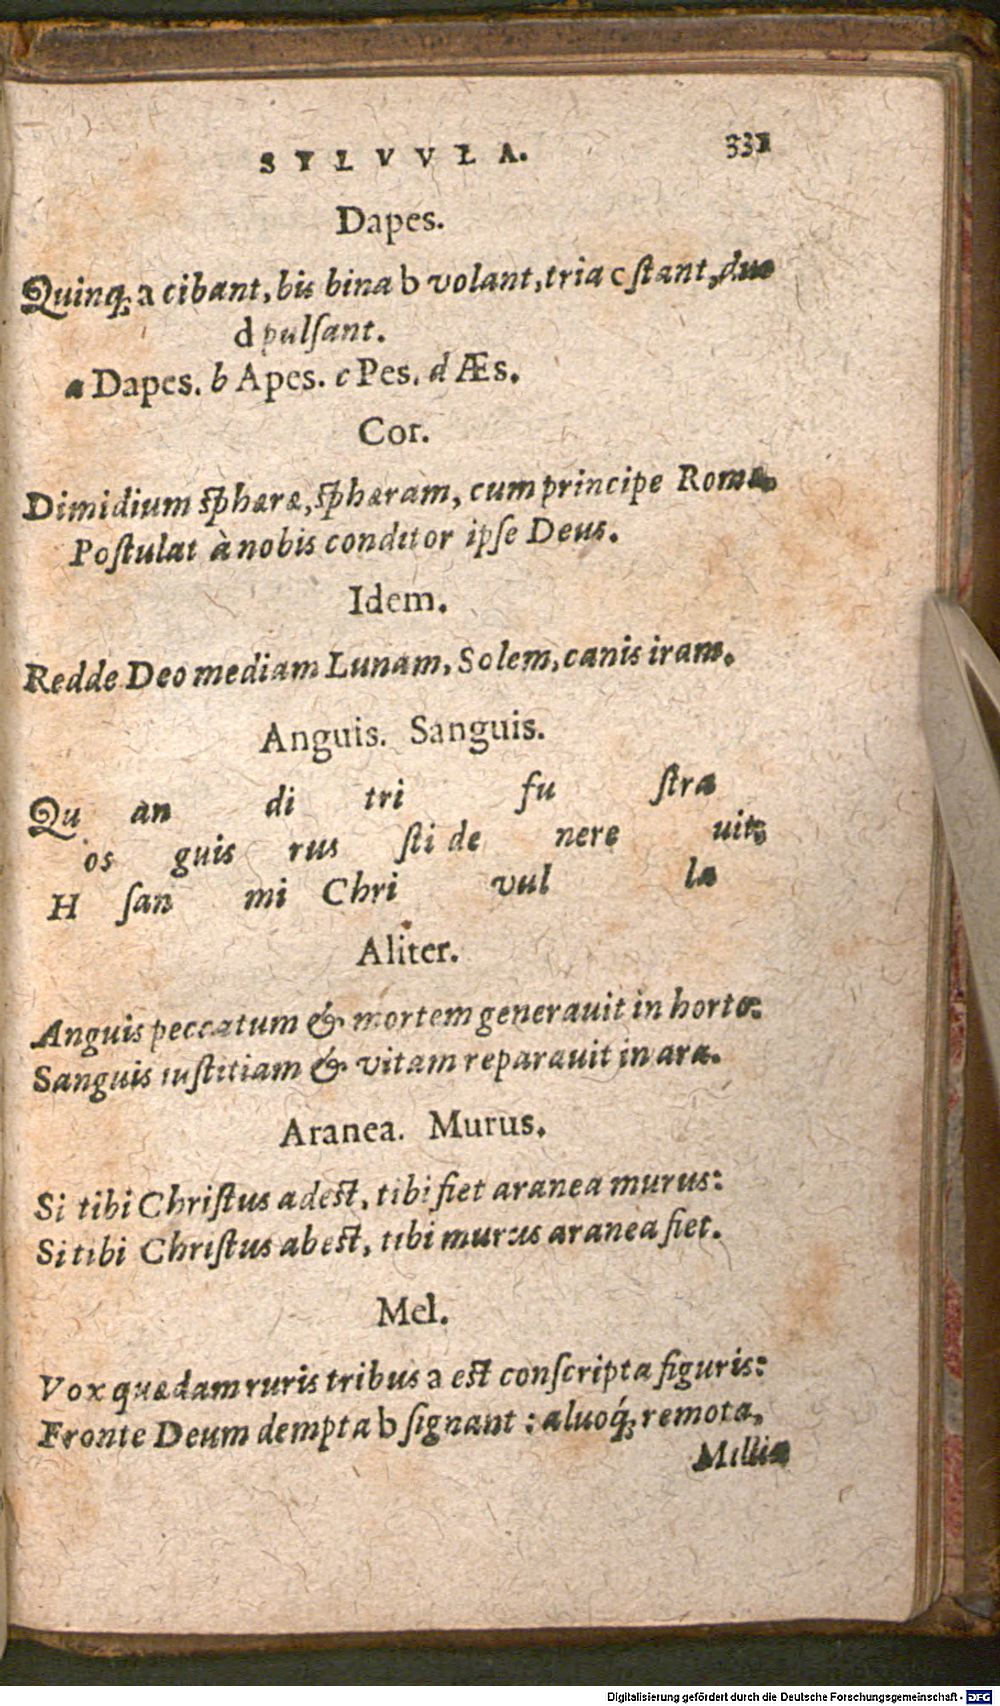 SYLVVLA. 331
Dapes.
Quinq; a cibant, bis bina b volant, tria c ſtant, duo
d pulſant.
a Dapes. b Apes. c Pes. d Æs.
Cor.
Dimidium ſphæræ, ſphæram, cum principe Romæ,
Poſtulat à nobis conditor ipſe Deus.
Idem.
Redde Deo mediam Lunam, Solem, canis iram.
Anguis. Sanguis.
Qu an di tri fu ſtra
os guis rus ſti de nere uit;
H ſan mi Chri vul la
Aliter.
Anguis peccatum & mortem generauit in horto:
Sanguis iuſtitiam & vitam reparauit in ara.
Aranea. Murus.
Si tibi Chriſtus adeſt, tibi fiet aranea murus:
Si tibi Chriſtus abeſt, tibi murus aranea fiet.
Mel.
Vox quædam ruris tribus a eſt conſcripta figuris:
Fronte Deum dempta b ſignant: aluoq́; remota,
Millia
Digitalisierung gefördert durch die Deutsche Forschungsgemeinschaft - DFG